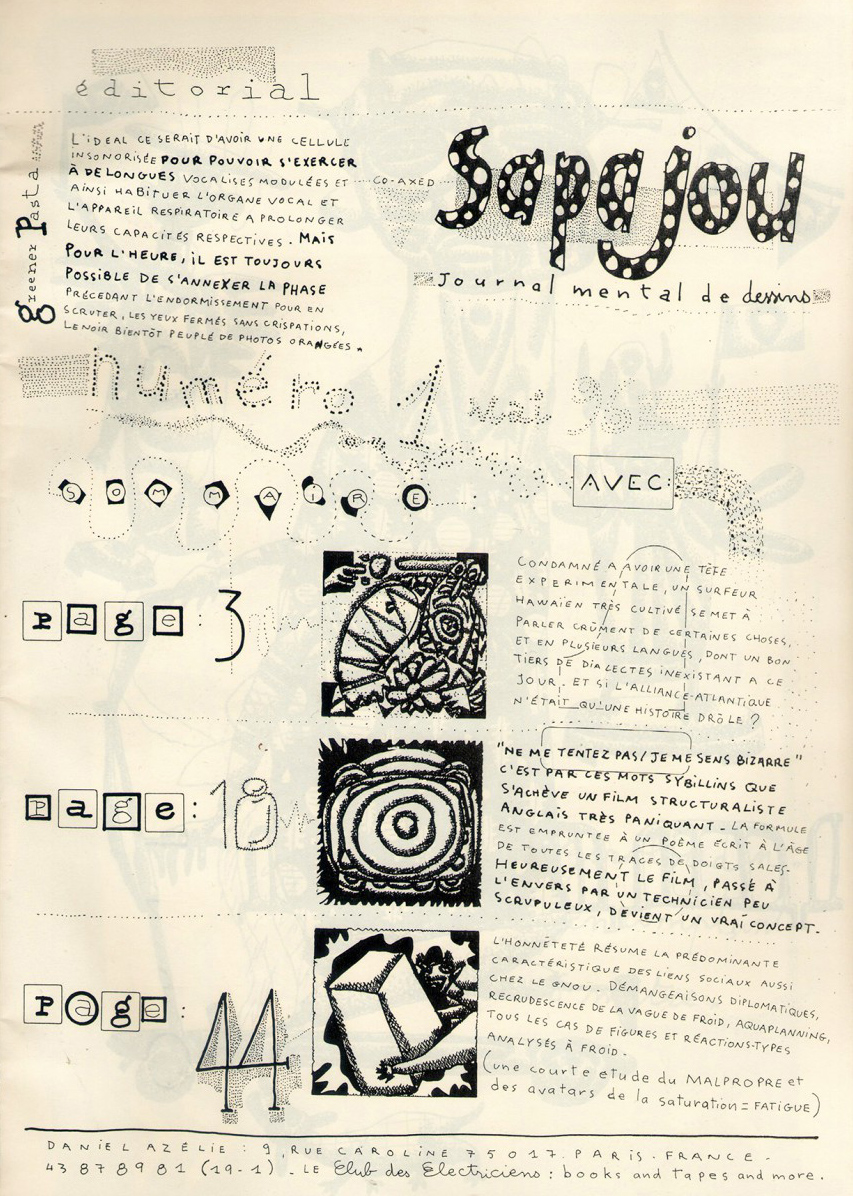 éditorial
greener Pasta
L'IDÉAL CE SERAIT D'AVOIR UNE CELLULE
INSONORISÉE POUR POUVOIR S'EXERCER
À DE LONGUES VOCALISES MODULÉES ET
AINSI HABITUER L'ORGANE VOCAL ET
L'APPAREIL RESPIRATOIRE A PROLONGER
LEURS CAPACITÉS RESPECTIVES. MAIS
POUR L'HEURE, IL EST TOUJOURS
POSSIBLE DE S'ANNEXER LA PHASE
PRÉCÉDANT L'ENDORMISSEMENT POUR EN
SCRUTER, LES YEUX FERMÉS SANS CRISPATIONS,
LE NOIR BIENTÔT PEUPLÉ DE PHOTOS ORANGÉES.
CO-AXED
Sapajou
Journal mental de dessins
numéro 1 mai 96
SOMMAIRE
AVEC:
page: 3
CONDAMNÉ A AVOIR UNE TÊTE
EXPERIMENTALE, UN SURFEUR
HAWAÏEN TRÈS CULTIVÉ SE MET À
PARLER CRÛMENT DE CERTAINES CHOSES,
ET EN PLUSIEURS LANGUES, DONT UN BON
TIERS DE DIALECTES INEXISTANT A CE
JOUR. ET SI L'ALLIANCE-ATLANTIQUE
N'ÉTAIT QU'UNE HISTOIRE DRÔLE ?
page: 18
"NE ME TENTEZ PAS/JE ME SENS BIZARRE"
C'EST PAR CES MOTS SYBILLINS QUE
S'ACHÈVE UN FILM STRUCTURALISTE
ANGLAIS TRÈS PANIQUANT. LA FORMULE
EST EMPRUNTÉE À UN POÈME ÉCRIT À L'ÂGE
DE TOUTES LES TRACES DE DOIGTS SALES.
HEUREUSEMENT LE FILM, PASSÉ À
L'ENVERS PAR UN TECHNICIEN PEU
SCRUPULEUX, DEVIENT UN VRAI CONCEPT.
page: 44
L'HONNÊTETÉ RÉSUME LA PRÉDOMINANTE
CARACTÉRISTIQUE DES LIENS SOCIAUX AUSSI
CHEZ LE GNOU. DÉMANGEAISONS DIPLOMATIQUES,
RECRUDESCENCE DE LA VAGUE DE FROID, AQUAPLANNING,
TOUS LES CAS DE FIGURES ET RÉACTIONS-TYPES
ANALYSÉS À FROID.
(une courte étude du MALPROPRE et
des avatars de la saturation = FATIGUE)
DANIEL AZÉLIE : 9, RUE CAROLINE 75017. PARIS. FRANCE.
43 87 89 81 (19-1) . LE Club des Electriciens : books and tapes and more.